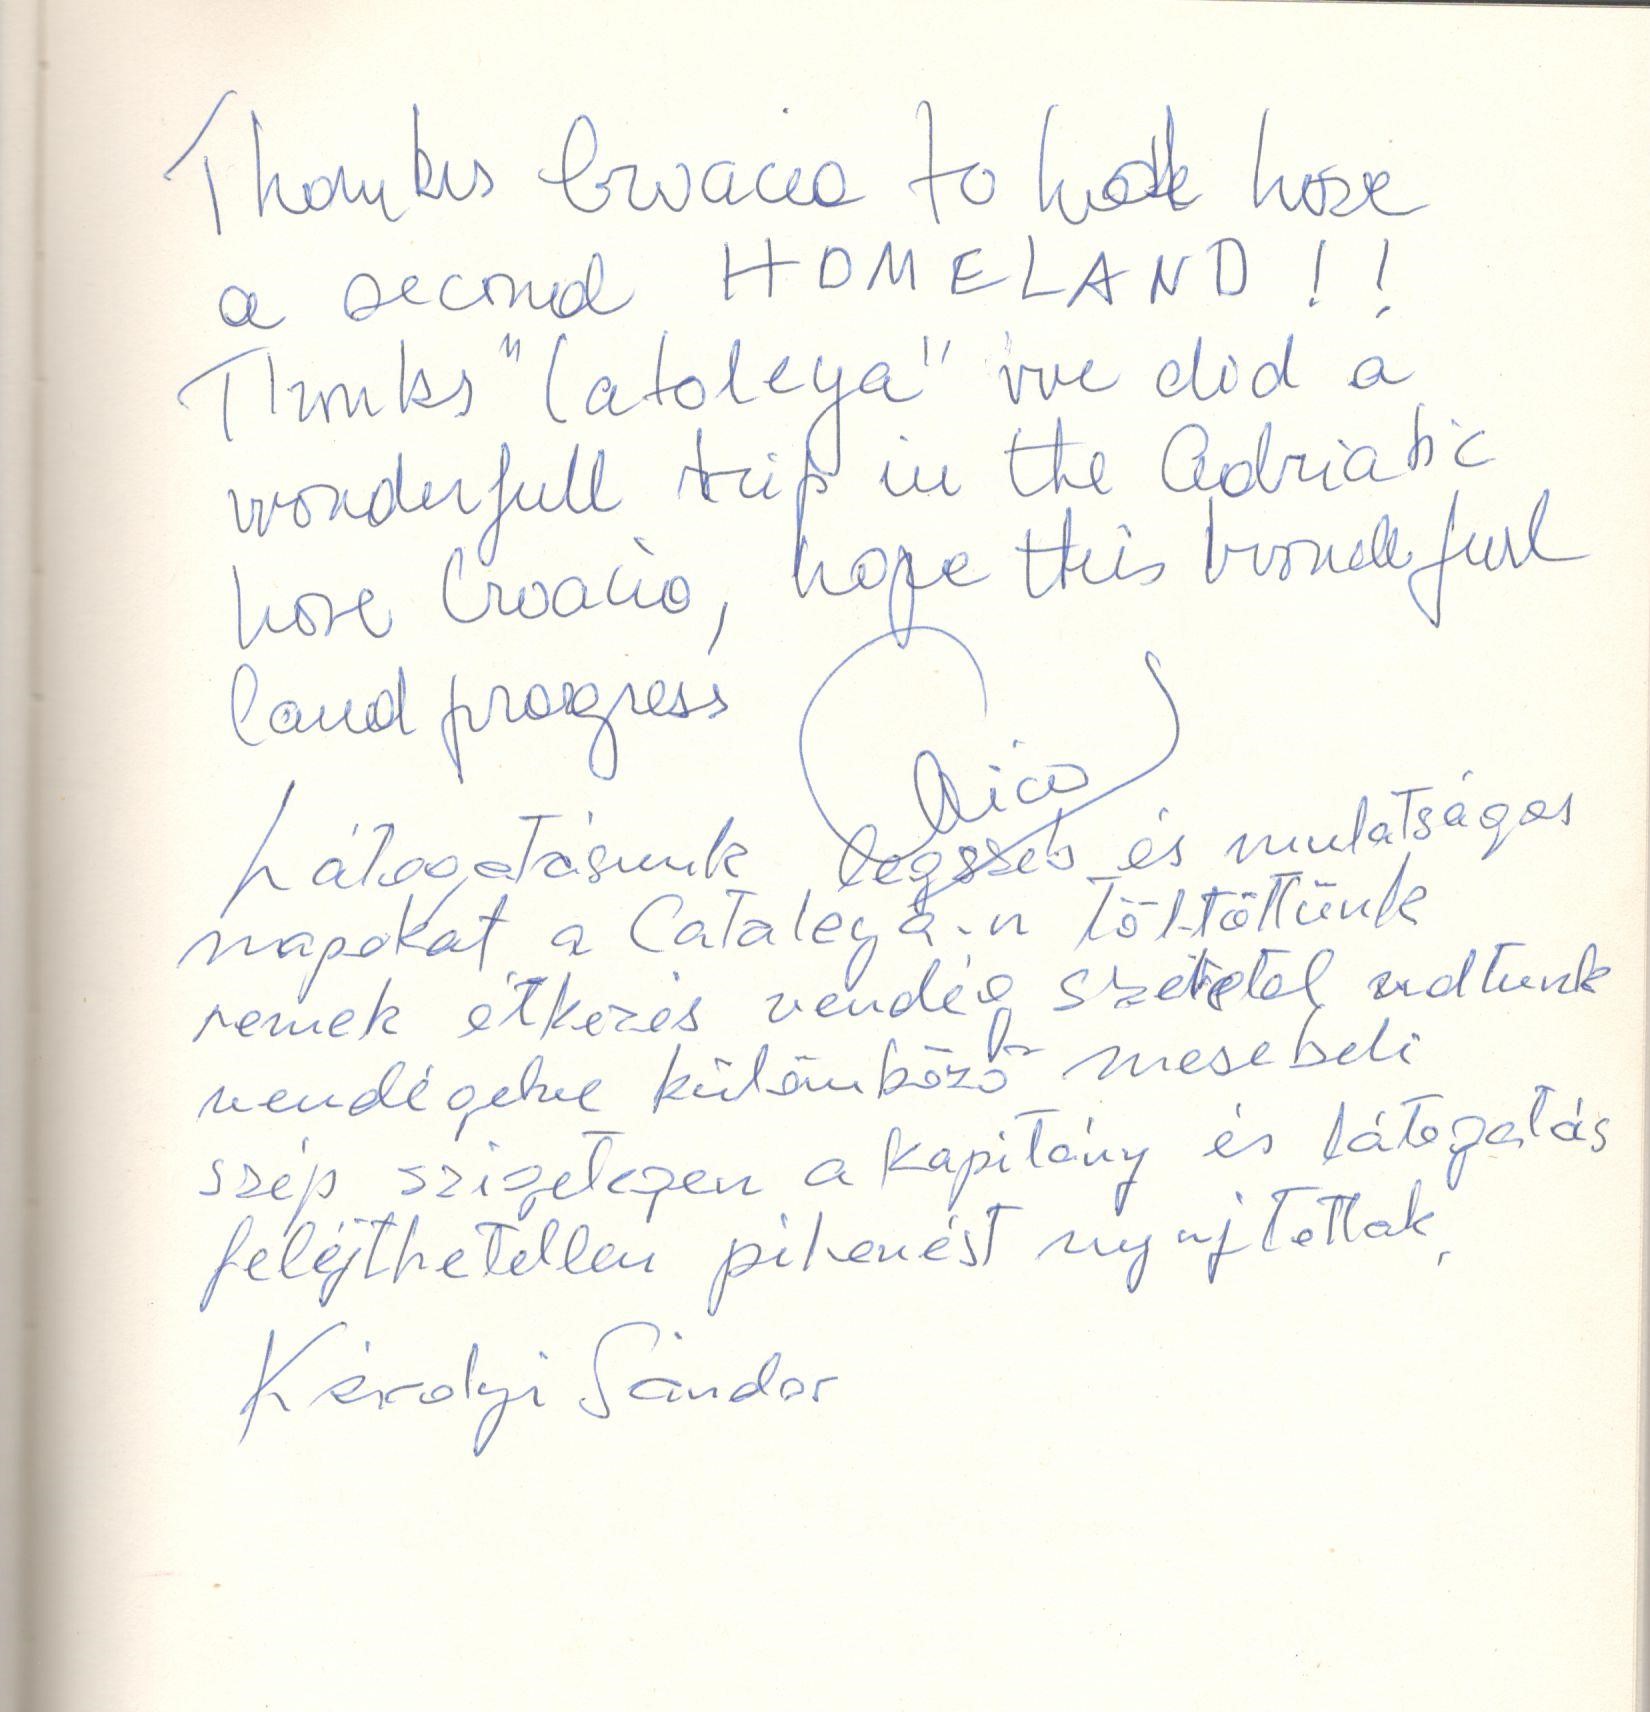 Thanks Croacia to have here
a second HOMELAND!!
Thanks "Cataleya" we did a
wonderfull trip in the Adriatic
here Croacia, hope this wonderfull
land progress
Látogatásunk legszeb és mulatságos
napokat a Cataleya-n töltöttünk
remek étkezés vendég udtunk
különböző mesebeli
szép szigetegen a kapitány és látogatás
felejthetetlen pihenést nyujtottak,
Károlyi Sándor